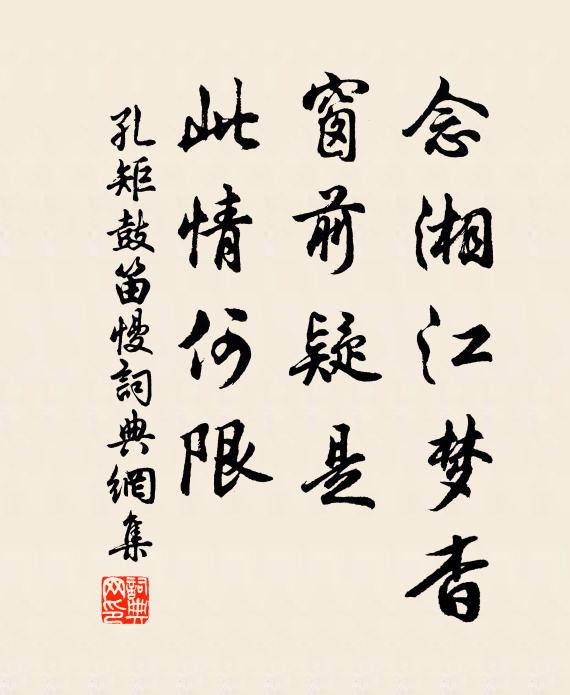 念湘江梦杳
窗前疑是
此情何限
孔矩鼓笛慢詞典網集
詞典网印